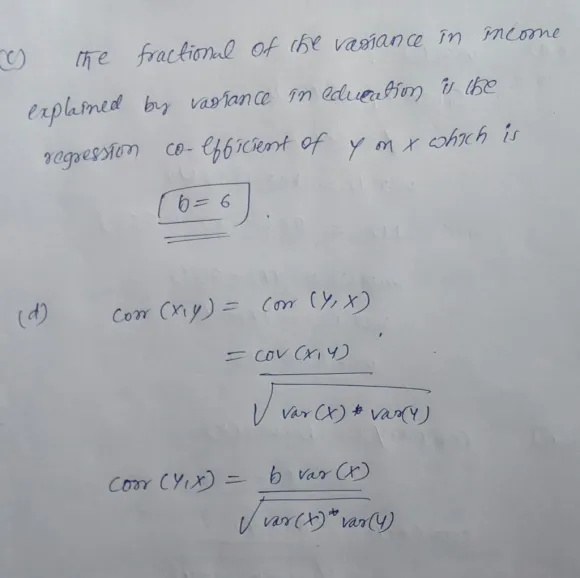 (c) The fractional of the variance in income
explained by variance in education is the
regression co-efficient of y on x which is
b = 6
(d) Corr (x,y) = Corr (Y, X)
= COV (X,Y)
√ var (X) * var(Y)
Corr (Y,X) = b var (X)
√ var (X) * var(Y)